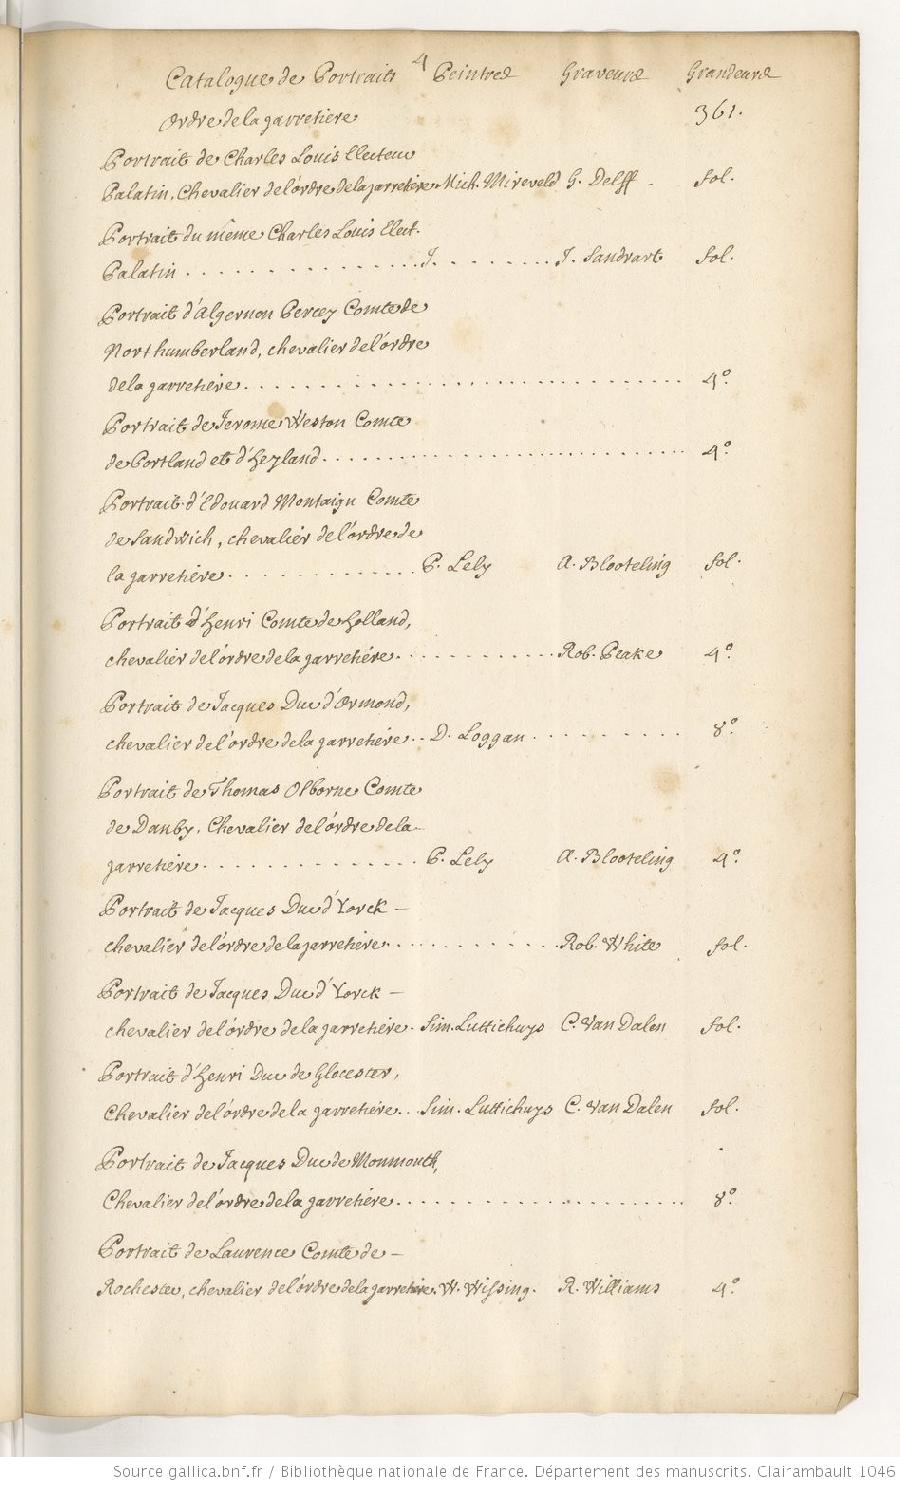 4
Catalogue de Portraits Peintres Graveurs Grandeurs
ordre de la garretiere 361.
Portrait de Charles Louis Electeur
Palatin, Chevalier de l'ordre de la garretiere. Mich. Mireveld G. Delff . fol.
Portrait du même Charles Louis Elect.
Palatin . . . . . . . . . . . . . . . J. . . . . . . . . J. Sandrart fol.
Portrait d'Algernon Percey Comte de
Northumberland, chevalier de l'ordre
de la garretiere . . . . . . . . . . . . . . . . . . . . . . . . . . . . 4º.
Portrait de Jerome Weston Comte
de Portland et d'Heyland . . . . . . . . . . . . . . . . . . . . . . . . 4º.
Portrait d'Edouard Montaigu Comte
de Sandwich, chevalier de l'ordre de
la garretiere . . . . . . . . . . . . P. Lely A. Blooteling fol.
Portrait d'Henri Comte de Holland,
chevalier de l'ordre de la garretiére . . . . . . . . . . . Rob. Peake 4º.
Portrait de Jacques Duc d'Ormond,
chevalier de l'ordre de la garretiére . . D. Loggan . . . . . . . . . 8º.
Portrait de Thomas Olborne Comte
de Danby, Chevalier de l'ordre de la
garretiére . . . . . . . . . . . . . . P. Lely A. Blooteling 4º.
Portrait de Jacques Duc d'Yorck —
chevalier de l'ordre de la garretiére . . . . . . . . . . . Rob. White fol.
Portrait de Jacques Duc d'Yorck —
chevalier de l'ordre de la garretiére . Sim. Luttichuys C. Van Dalen fol.
Portrait d'Henri Duc de Glocester,
Chevalier de l'ordre de la garretiére . . Sim. Luttichuys C. Van Dalen fol.
Portrait de Jacques Duc de Monmouth,
Chevalier de l'ordre de la garretiére . . . . . . . . . . . . . . . . . . . 8º.
Portrait de Laurence Comte de —
Rochester, chevalier de l'ordre de la garretiére. W. Wissing. R. Williams 4º.
Source gallica.bnf.fr / Bibliothèque nationale de France. Département des manuscrits. Clairambault 1046